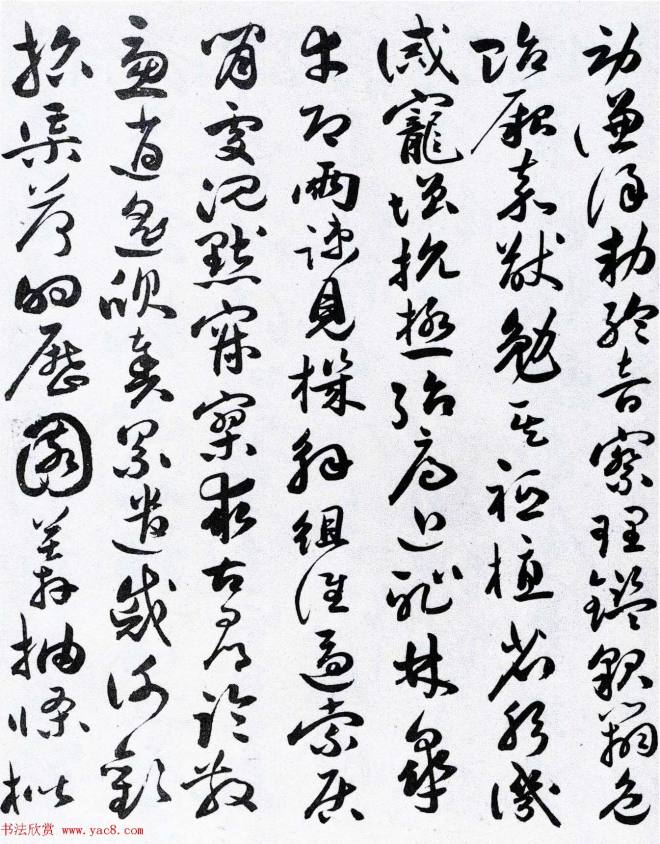 勞謙謹勅聆音察理鑑貌辯色
貽厥嘉猷勉其祗植省躬譏
誡寵增抗極殆辱近恥林皋
幸即兩疏見機解組誰逼索居
閑處沉默寂寥求古尋論散
慮逍遙欣奏累遣慼謝歡
招渠荷的歷園莽抽條枇
书法欣赏 www.yac8.com